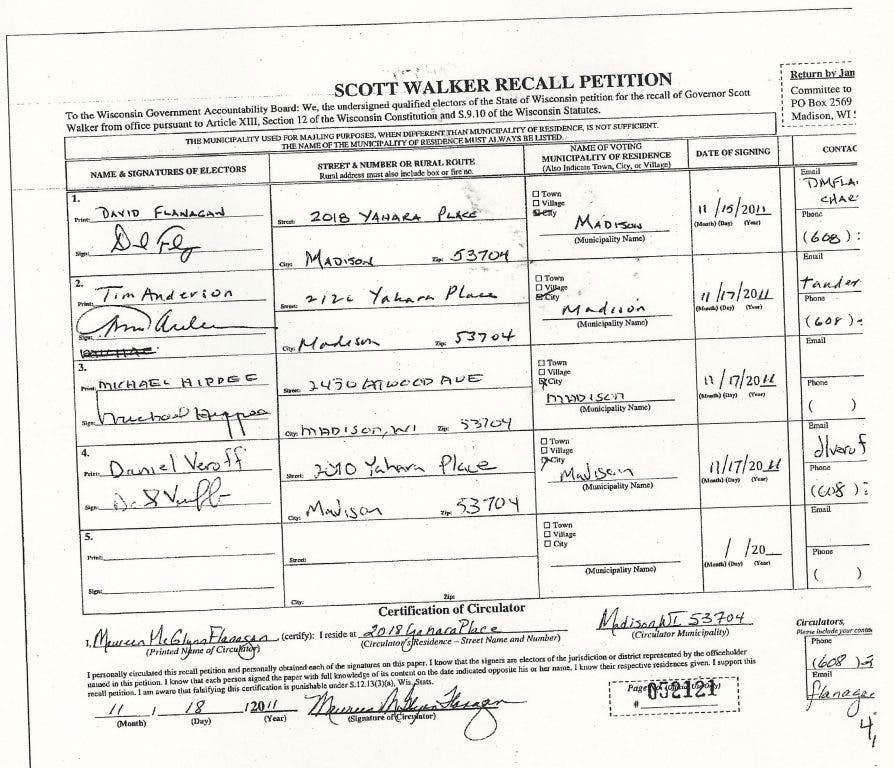 SCOTT WALKER RECALL PETITION
To the Wisconsin Government Accountability Board: We, the undersigned qualified electors of the State of Wisconsin petition for the recall of Governor Scott
Walker from office pursuant to Article XIII, Section 12 of the Wisconsin Constitution and S.9.10 of the Wisconsin Statutes.
Return by Jan
Committee to
PO Box 2569
Madison, WI
THE MUNICIPALITY USED FOR MAILING PURPOSES, WHEN DIFFERENT THAN MUNICIPALITY OF RESIDENCE, IS NOT SUFFICIENT.
THE NAME OF THE MUNICIPALITY OF RESIDENCE MUST ALWAYS BE LISTED.
NAME & SIGNATURES OF ELECTORS
STREET & NUMBER OR RURAL ROUTE
Rural address must also include box or fire no.
NAME OF VOTING
MUNICIPALITY OF RESIDENCE
(Also Indicate Town, City, or Village)
DATE OF SIGNING
CONTAC
1.
Print: DAVID FLANAGAN
Sign:
Street: 2018 YAHARA PLACE
City: MADISON Zip: 53704
Town
Village
City
MADISON
(Municipality Name)
11/15/2011
(Month) (Day) (Year)
Email
DMFLA
CHAR
Phone
(608)
2.
Print: Tim Anderson
Sign:
Street: Yahara Place
City: Madison Zip: 53704
Town
Village
City
Madison
(Municipality Name)
11/17/2011
(Month) (Day) (Year)
Email
tander
Phone
(608)
3.
Print: MICHAEL HIPPEE
Sign: Michael Hippee
Street: ATWOOD AVE
City: MADISON, WI Zip: 53704
Town
Village
City
MADISON
(Municipality Name)
11/17/2011
(Month) (Day) (Year)
Email
Phone
( )
4.
Print: Daniel Veroff
Sign:
Street: Yahara Place
City: Madison Zip: 53704
Town
Village
City
Madison
(Municipality Name)
11/17/2011
(Month) (Day) (Year)
Email
dverof
Phone
(608)
5.
Print:
Sign:
Street:
City: Zip:
Town
Village
City
(Municipality Name)
/ /20
(Month) (Day) (Year)
Email
Phone
( )
Certification of Circulator
I, Maureen McGlynn Flanagan, (certify): I reside at 2018 Yahara Place Madison WI 53704
(Printed Name of Circulator) (Circulator's Residence – Street Name and Number) (Circulator Municipality)
I personally circulated this recall petition and personally obtained each of the signatures on this paper. I know that the signers are electors of the jurisdiction or district represented by the officeholder
named in this petition. I know that each person signed the paper with full knowledge of its content on the date indicated opposite his or her name. I know their respective residences given. I support this
recall petition. I am aware that falsifying this certification is punishable under S.12.13(3)(a), Wis. Stats.
11 / 18 2011 Maureen McGlynn Flanagan
(Month) (Day) (Year) (Signature of Circulator)
Page No. (Official Use Only)
# 052121
Circulators,
Please include your contac
Phone
(608)
Email
flanagan
4